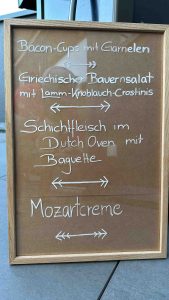 Bacon-Cups mit Garnelen
Griechischer Bauernsalat
mit Lamm-Knoblauch-Crostinis
Schichtfleisch im
Dutch Oven mit
Baguette
Mozartcreme